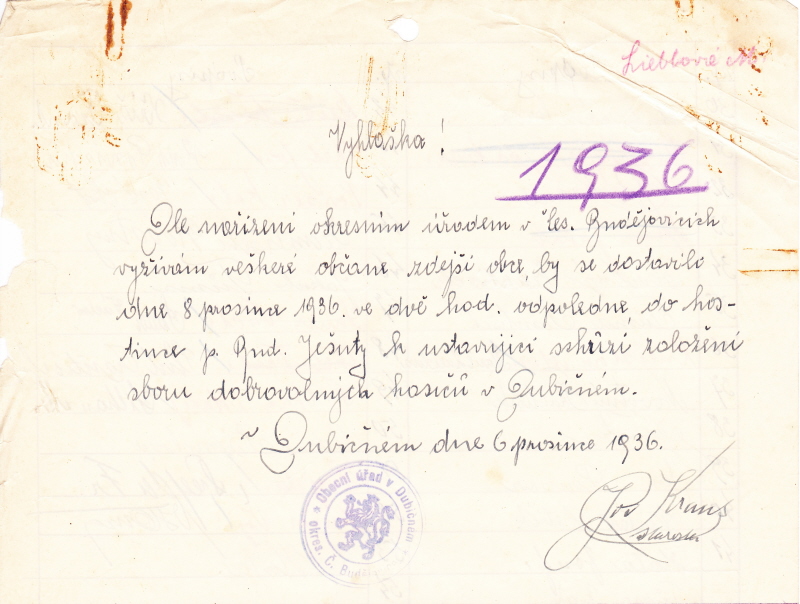 Lieblové
Vyhláška!
1936
Dle nařízení okresním úřadem v Čes. Budějovicích
vyzívám veškeré občane zdejší obce, by se dostavilo
dne 8 prosince 1936. ve dvě hod. odpoledne, do hos-
tince p. Rud. Ješuty k ustavující schůzi založení
sboru dobrovolných hasičů v Dubičném.
v Dubičném dne 6 prosince 1936.
Jos Kraus
starosta
Obecní úřad v Dubičném
okres. Č. Buděj